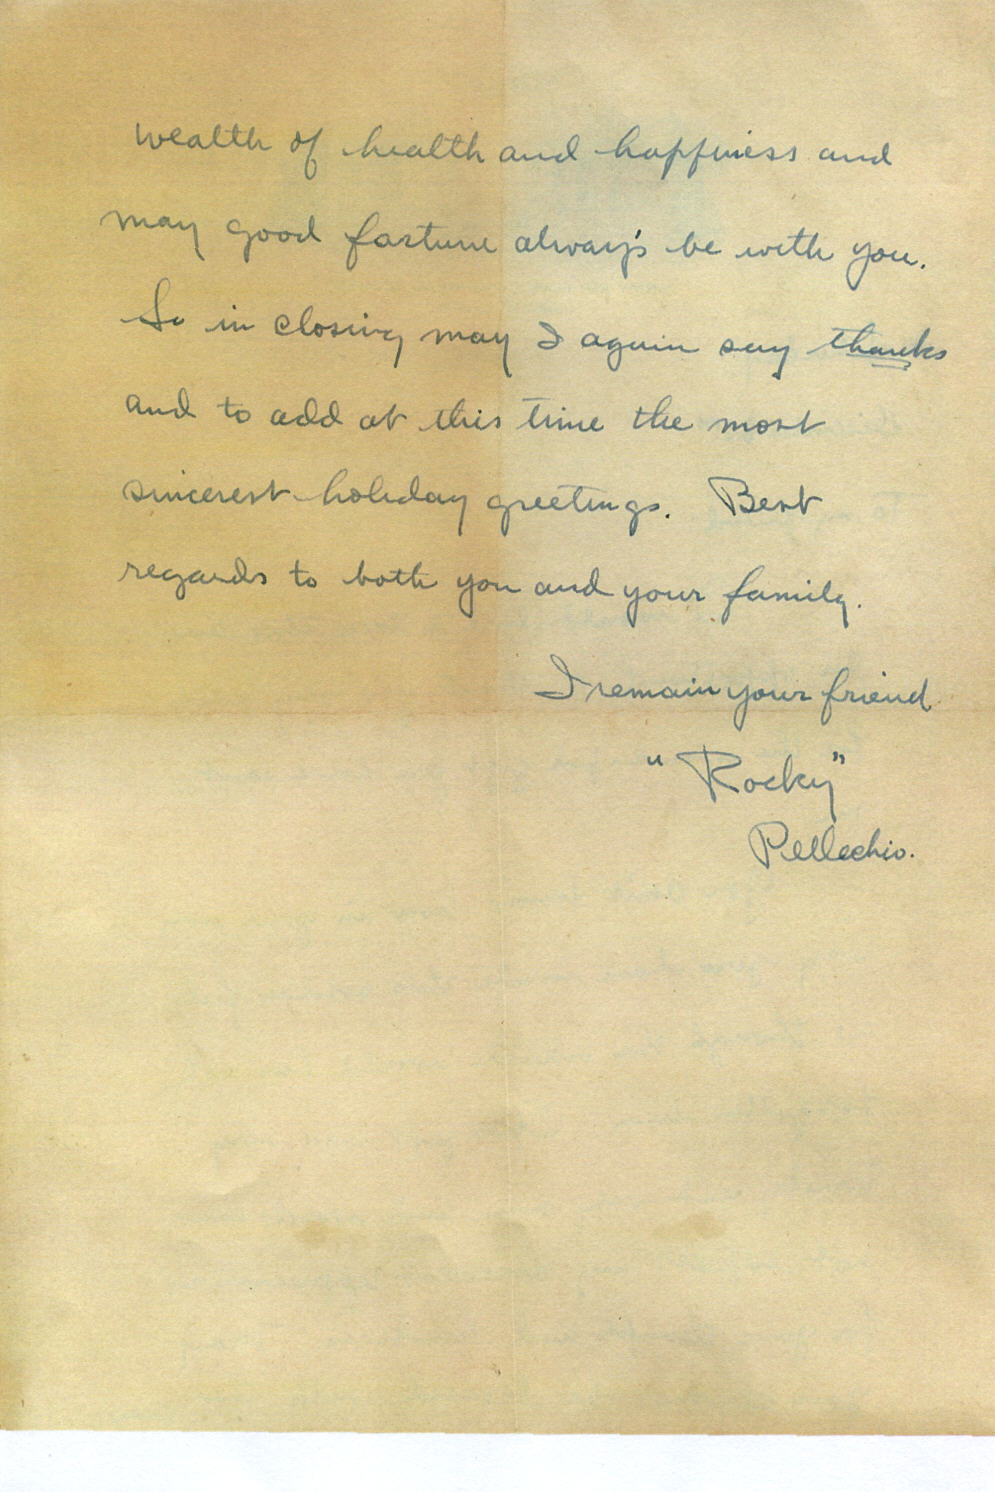 wealth of health and happiness and
may good fortune alway's be with you.
So in closing may I again say thanks
and to add at this time the most
sincerest holiday greetings. Best
regards to both you and your family.
I remain your friend
"Rocky"
Pellechio.